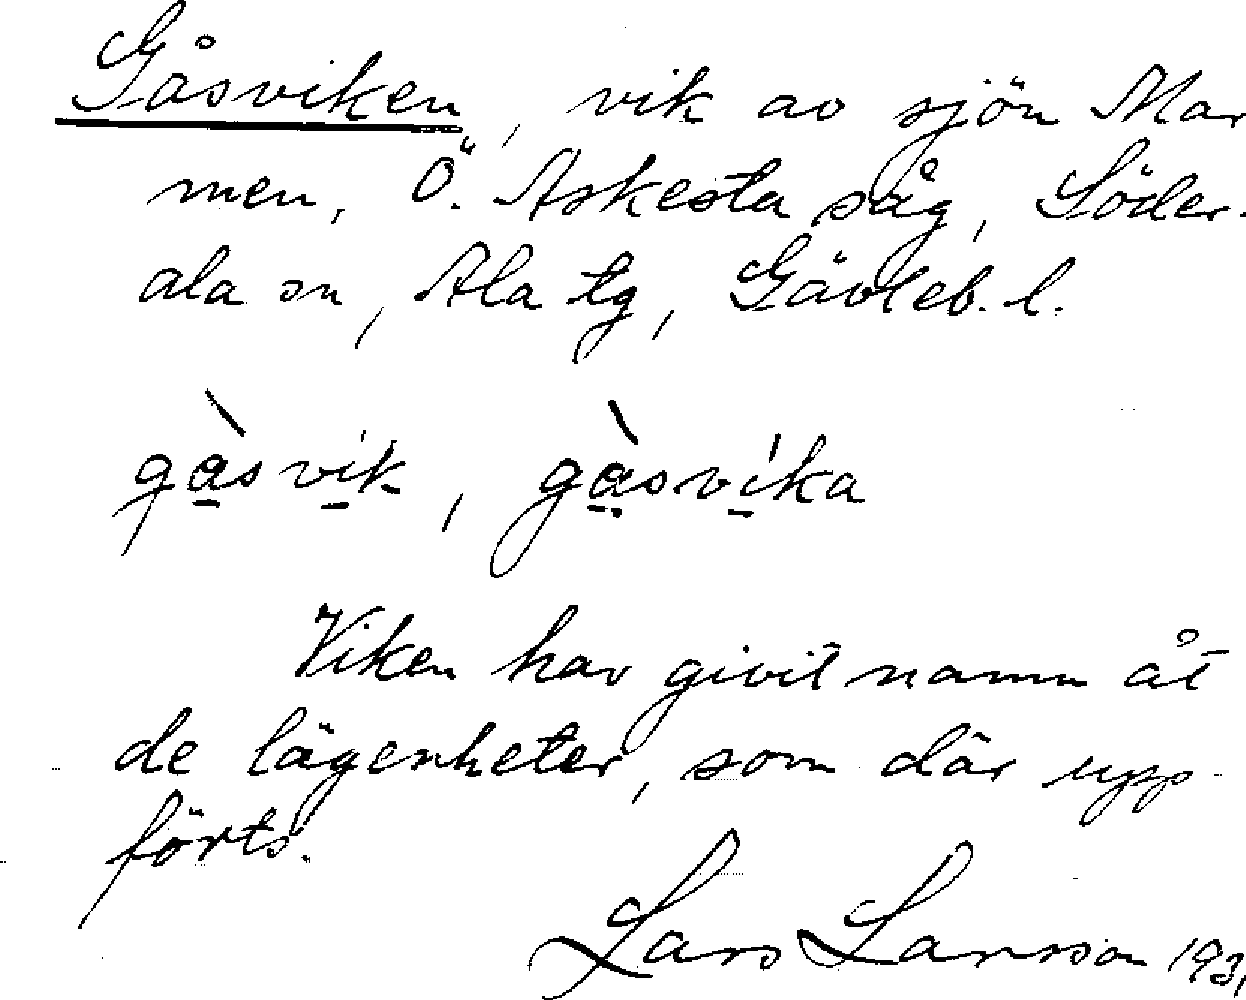 Gåsviken, vik av sjön Mar
men, Ö. Askesta såg, Söder-
ala sn, Ala tg, Gävleb. l.
gàsvik, gàsvika
Viken har givit namn åt
de lägenheter, som där upp-
förts.
Lars Larsson